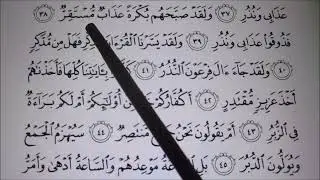 عَذَابِى وَنُذُرِ ٣٧ وَلَقَدْ صَبَّحَهُم بُكْرَةً عَذَابٌ مُّسْتَقِرٌّ ٣٨
فَذُوقُوا۟ عَذَابِى وَنُذُرِ ٣٩ وَلَقَدْ يَسَّرْنَا ٱلْقُرْءَانَ لِلذِّكْرِ فَهَلْ مِن مُّدَّكِرٍ
٤٠ وَلَقَدْ جَآءَ ءَالَ فِرْعَوْنَ ٱلنُّذُرُ ٤١ كَذَّبُوا۟ بِـَٔايَـٰتِنَا كُلِّهَا فَأَخَذْنَـٰهُمْ
أَخْذَ عَزِيزٍ مُّقْتَدِرٍ ٤٢ أَكُفَّارُكُمْ خَيْرٌ مِّنْ أُو۟لَـٰٓئِكُمْ أَمْ لَكُم بَرَآءَةٌ
فِى ٱلزُّبُرِ ٤٣ أَمْ يَقُولُونَ نَحْنُ جَمِيعٌ مُّنتَصِرٌ ٤٤ سَيُهْزَمُ ٱلْجَمْعُ
وَيُوَلُّونَ ٱلدُّبُرَ ٤٥ بَلِ ٱلسَّاعَةُ مَوْعِدُهُمْ وَٱلسَّاعَةُ أَدْهَىٰ وَأَمَرُّ